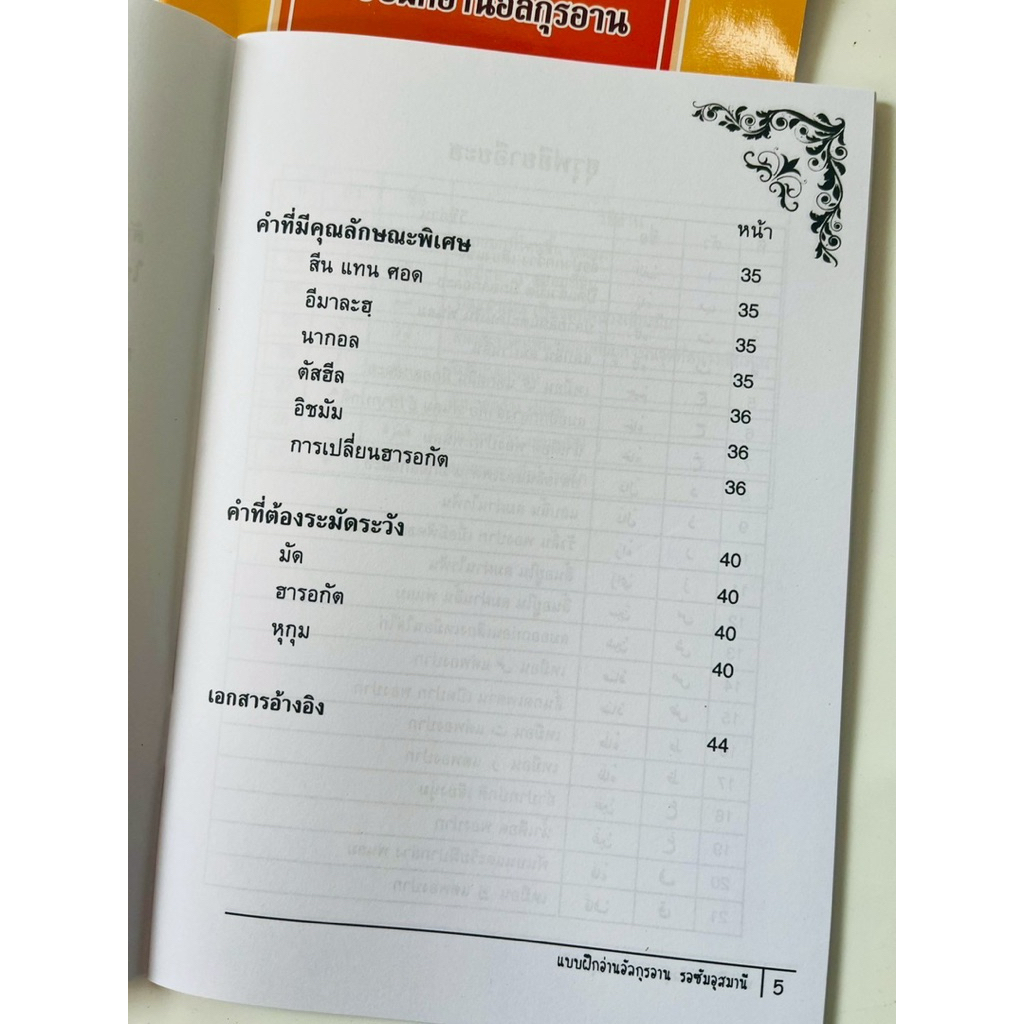 อัลกุรอาน
หน้า
คำที่มีคุณลักษณะพิเศษ
สีน แทน ศอด 35
อีมาละฮฺ 35
นากอล 35
ตัสฮีล 35
อิชมัม 36
การเปลี่ยนฮารอกัต 36
36
คำที่ต้องระมัดระวัง
มัด 40
ฮารอกัต 40
หุกุม 40
40
เอกสารอ้างอิง
44
แบบฝึกอ่านอัลกุรอาน รอซัมอุสมานี 5